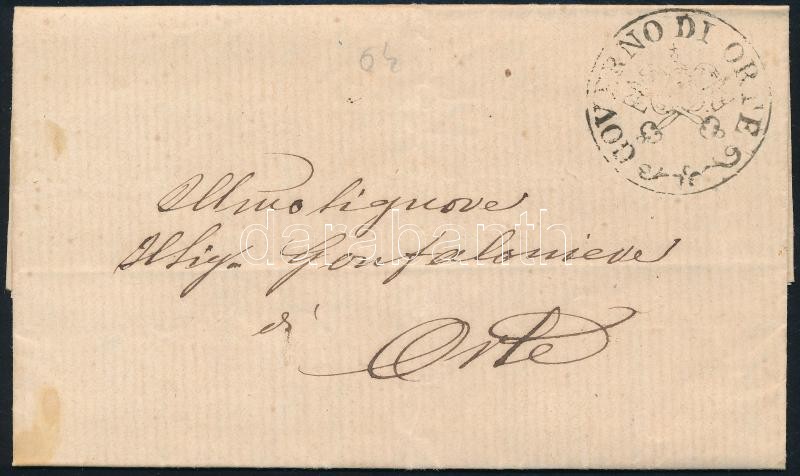 64
GOVERNO DI ORTE
Illmo Signore
Il Sig. Gonfaloniere
di
Orte
darabanth